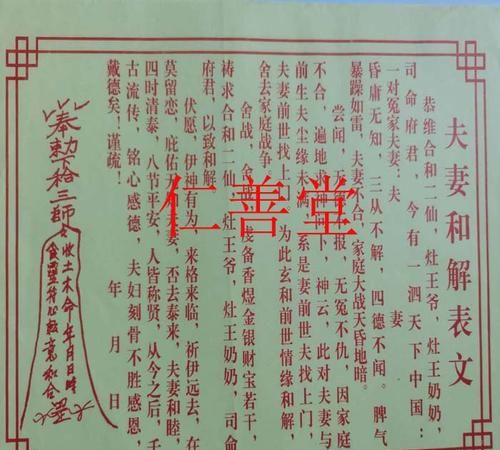 夫妻和解表文
恭维合和二仙，灶王爷，灶王奶奶，
司命府君，今有一泗天下中国：
一对冤家夫妻：夫　妻
昏庸无知，三从不解，四德不闻。脾气
暴躁如雷，夫妻不合，家庭大战天昏地暗。
尝闻，无报，无冤不仇，因家庭
不合，遍地求神下，神云，此对夫妻与
前生夫尘缘未满，系是妻前世夫找上门，
夫妻前世找上，为此玄和前世情缘和解，
舍去家庭战争
舍战，舍战，备香煜金银财宝若干，
祷求合和二仙，灶王爷，灶王奶奶，司命
府君，以致和解
伏愿，伊神有为，来格来临，祈伊远去，在
莫留恋，庇佑和夫妻，否去泰来，夫妻和睦，
四时清泰，八节平安，人皆称贤，从今之后，千
古流传，铭心感德，夫妇刻骨不胜感恩，
戴德矣！谨疏！　年　月　日
奉勅下裕三師
收土木命 年月日時
和合
仁善堂